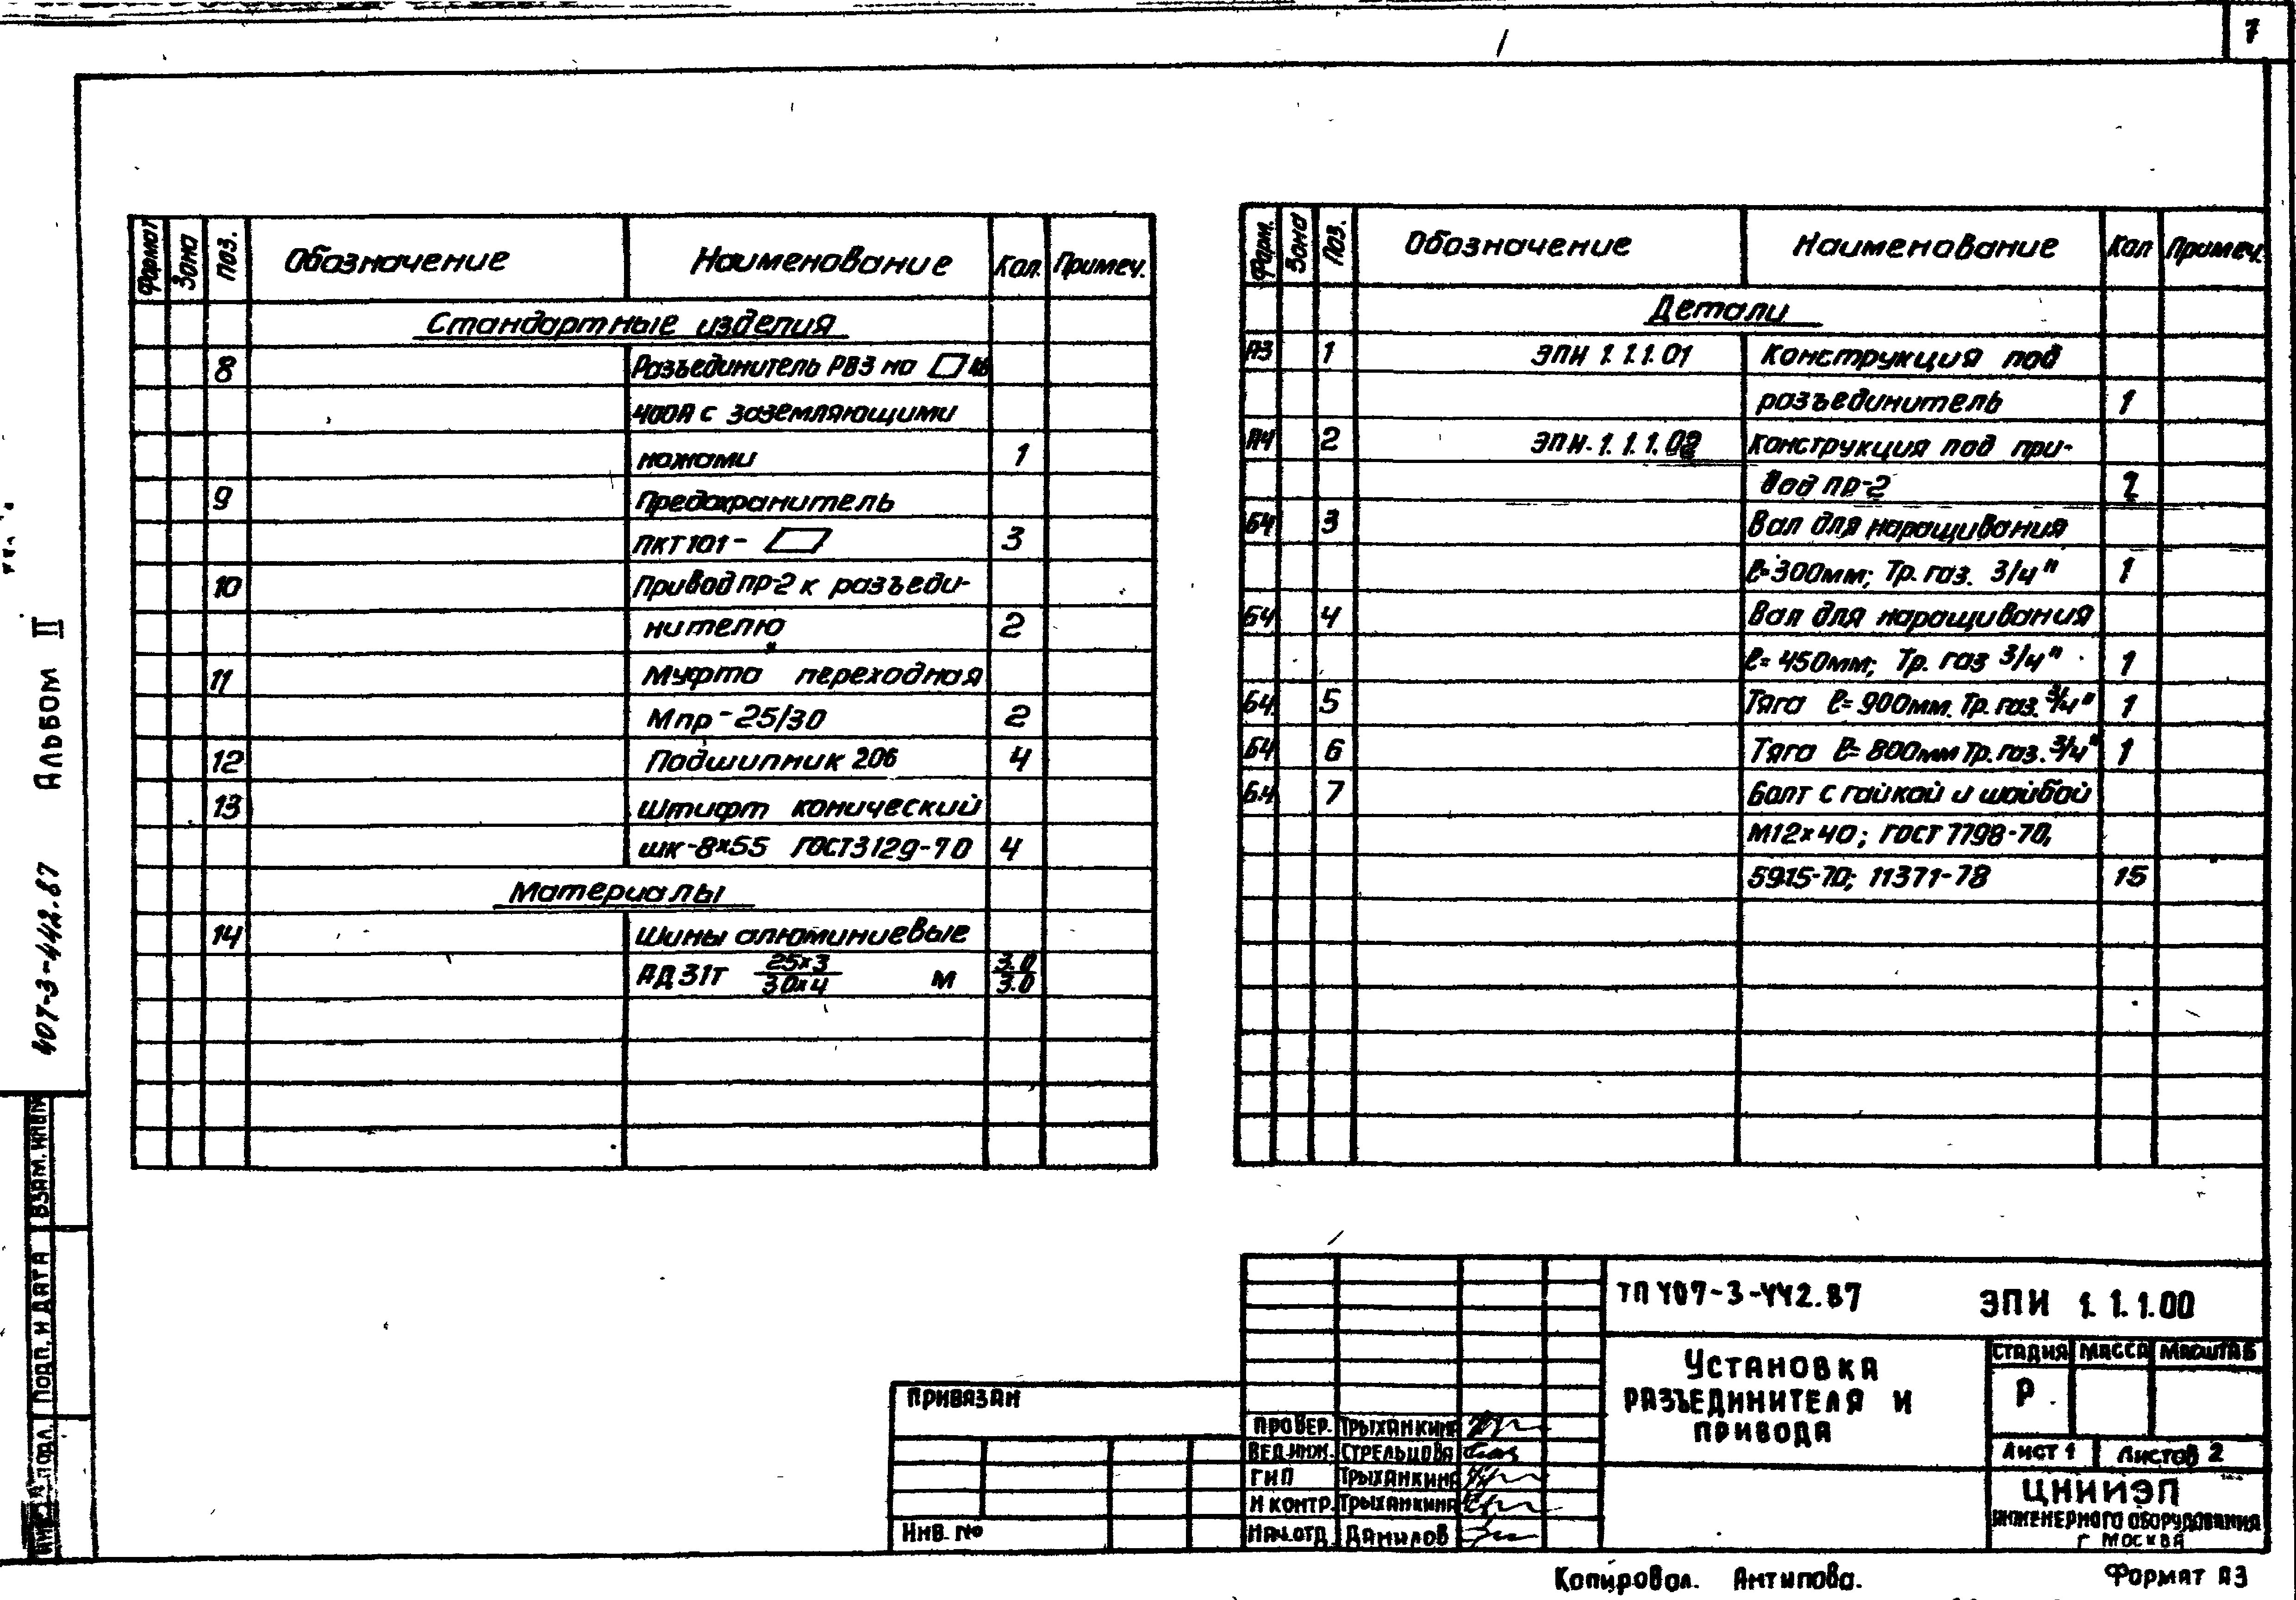 7
Формат Зона Поз. Обозначение Наименование Кол. Примеч.
Стандартные изделия
8 Разъединитель РВЗ на
400А с заземляющими
ножами 1
9 Предохранитель
ПКТ101- 3
10 Привод ПР-2 к разъеди-
нителю 2
11 Муфта переходная
Мпр-25/30 2
12 Подшипник 206 4
13 Штифт конический
шк-8х55 ГОСТ3129-70 4
Материалы
14 Шины алюминиевые
АД31т 25х3/30х4 м 3.0/3.0
Форм. Зона Поз. Обозначение Наименование Кол Примеч.
Детали
А3 1 ЭПИ 1.1.1.01 Конструкция под
разъединитель 1
А4 2 ЭПИ-1.1.1.02 Конструкция под при-
вод ПР-2 2
Б4 3 Вал для наращивания
ℓ=300мм; Тр. газ. 3/4" 1
Б4 4 Вал для наращивания
ℓ=450мм; Тр. газ 3/4" 1
Б4. 5 Тяга ℓ=900мм. Тр. газ. 3/4" 1
Б4 6 Тяга ℓ=800мм Тр. газ. 3/4" 1
Б.4 7 Болт с гайкой и шайбой
М12х40; ГОСТ 7798-70,
5915-70; 11371-78 15
407-3-442.87 Альбом II
Взам. инв№
Подп. и дата
подл.
Привязан
Инв. №
Провер. Трыханкина
Вед.инж. Стрельцова
ГИП Трыханкина
Н контр. Трыханкина
Нач.отд. Данилов
ТП 407-3-442.87 ЭПИ 1.1.1.00
Установка
разъединителя и
привода
Стадия Масса Масштаб
Р
Лист 1 Листов 2
ЦНИИЭП
инженерного оборудования
г Москва
Копировал. Антипова. Формат А3